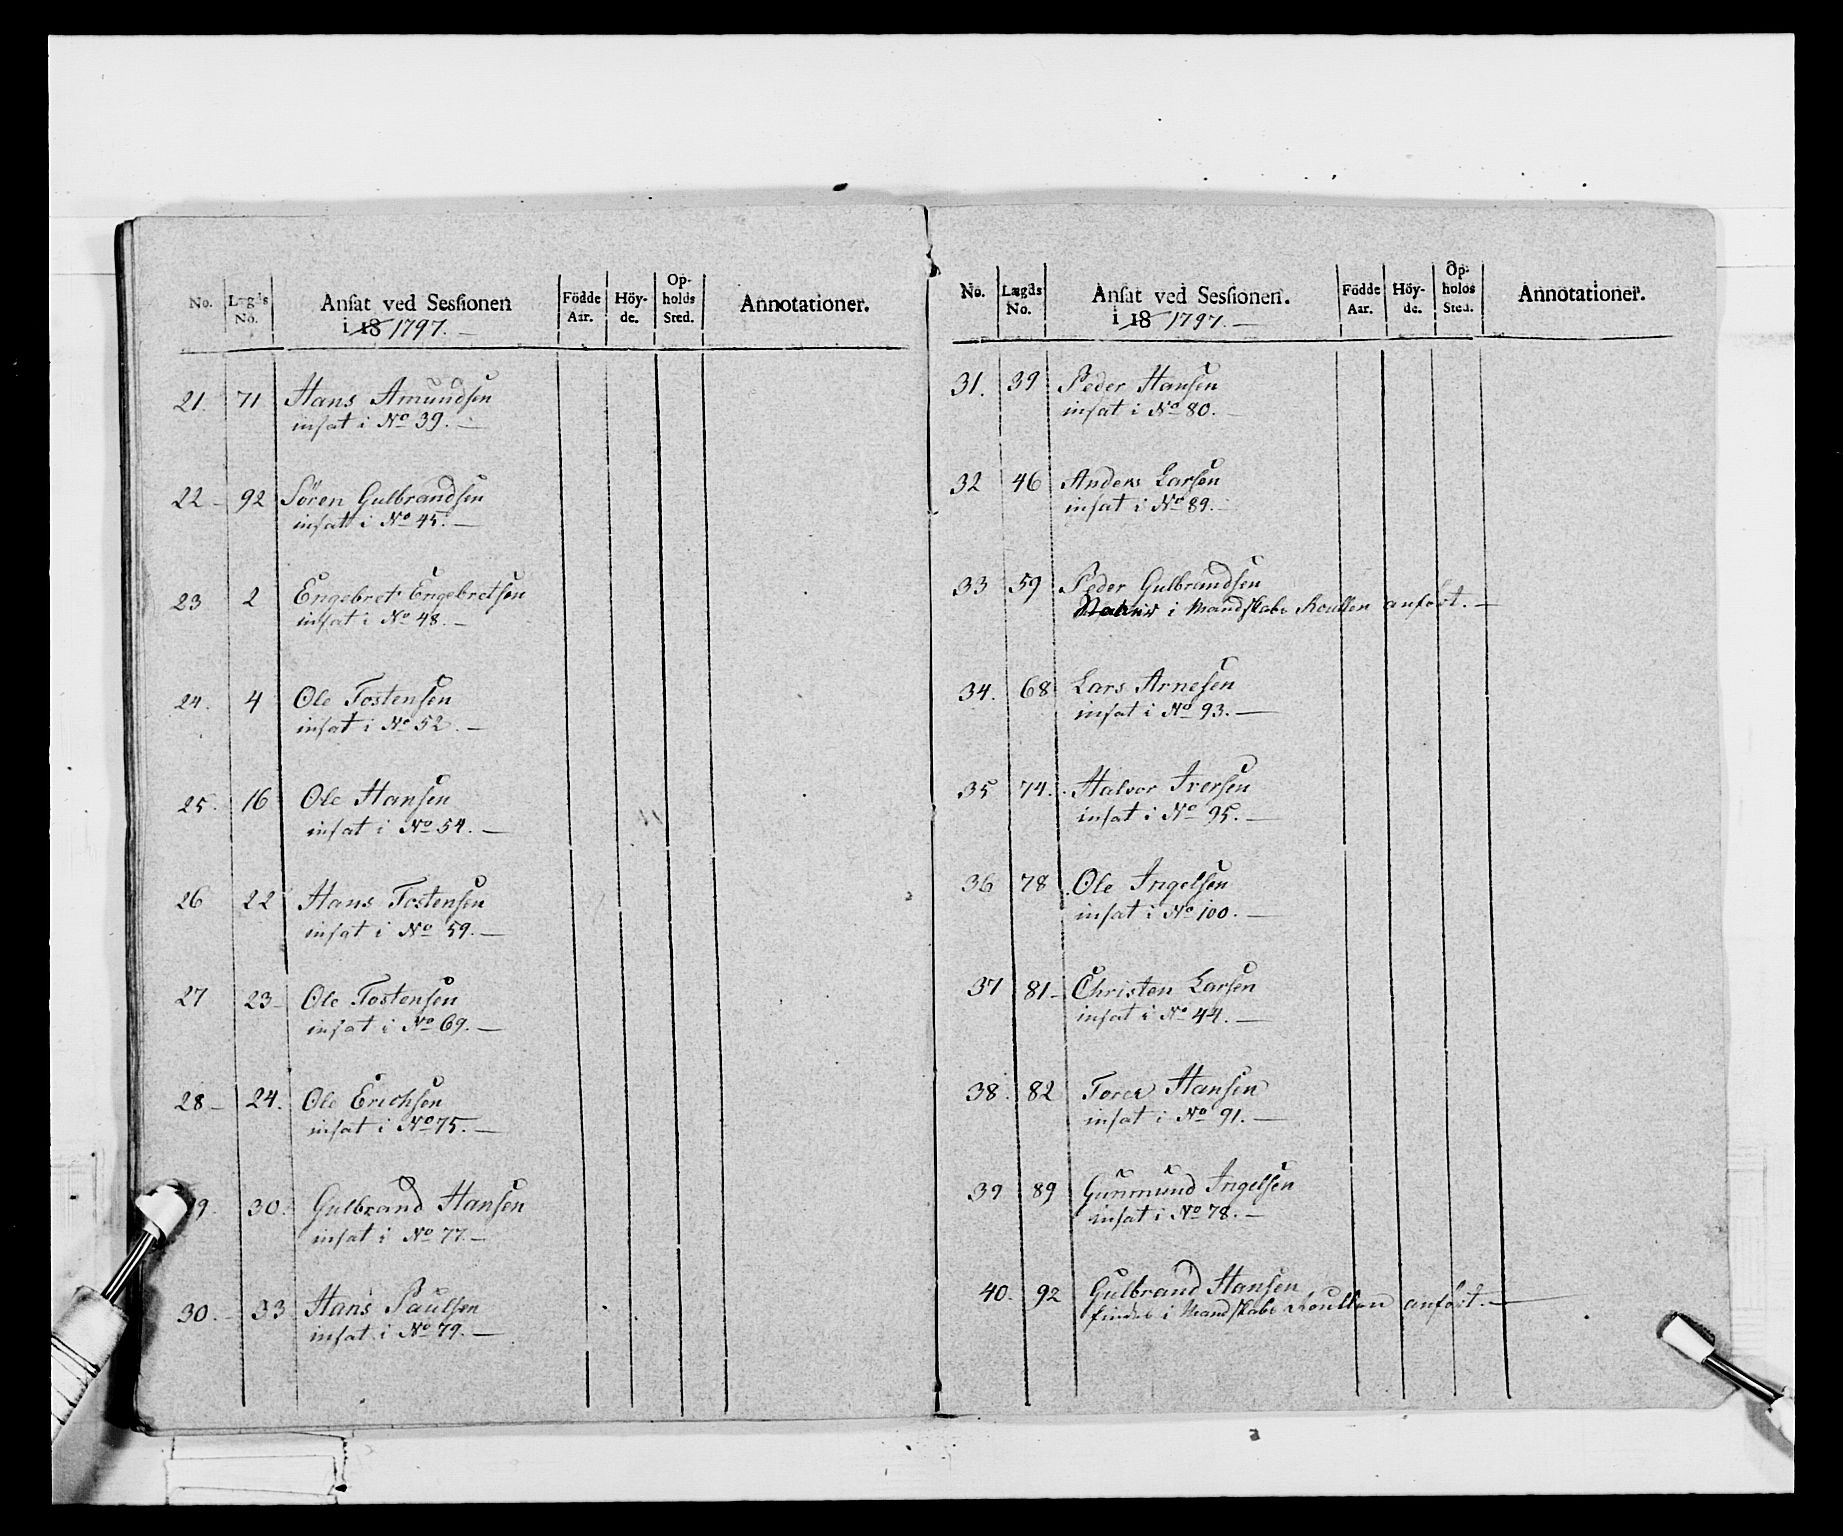 No. Lægds No. Ansat ved Sessionen i 18 1797. Födde Aar. Höy-de. Op-holds Sted. Annotationer.
21. 71 Hans Amundsen
insat i No 39. —
22 – 92 Sören Gulbrandsen
insat i No 45. —
23 2 Engebret Engebretsen
insat i No 48. —
24. 4 Ole Tostensen
insat i No 52. —
25. 16 Ole Hansen
insat i No 54. —
26 22 Hans Tostensen
insat i No 59. —
27 23 – Ole Tostensen
insat i No 69. —
28 – 24. Ole Erichsen
insat i No 75. —
9. 30. Gulbrand Hansen
insat i No 77. —
30. – 33 Hans Paulsen
insat i No 79. —
No. Lægds No. Ansat ved Sessionen. i 18 1797. — Födde Aar. Höy-de. Op-holds Sted. Annotationer.
31. 39 Peder Hansen
insat i No 80. —
32 46 Anders Larsen
insat i No 89. —
33 59 Peder Gulbrandsen
i Mandskabs Roullen anfört. —
34. 68 Lars Arnesen
insat i No 93. —
35 74. Halvor Iversen
insat i No 95. —
36 78 Ole Ingelsen
insat i No 100. —
37 81 – Christen Larsen
insat i No 44. —
38. 82 Torer Hansen
insat i No 91. —
39 89 Gunmund Ingelsen
insat i No 78. —
40. 92 Gulbrand Hansen
findes i Mandskabs Roullen anfört. —